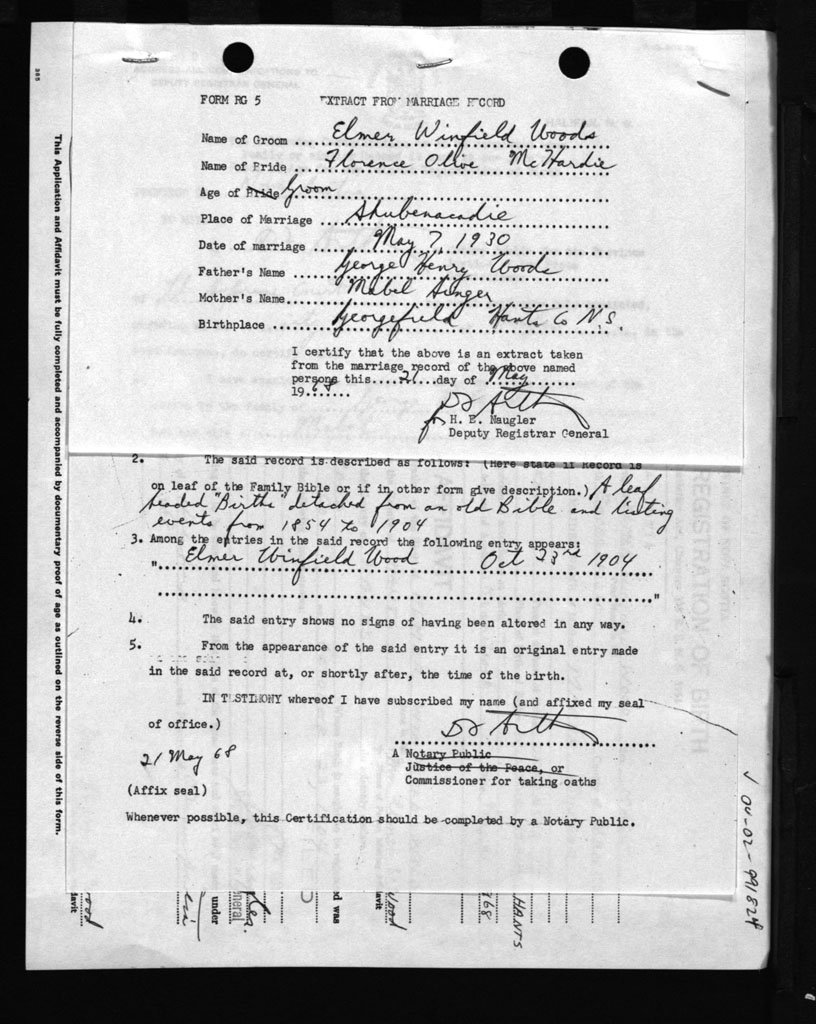 FORM RG 5 EXTRACT FROM MARRIAGE RECORD
Name of Groom .... Elmer Winfield Woods
Name of Bride .... Florence Olive McHardie
Age of Bride Groom
Place of Marriage ... Shubenacadie
Date of marriage ... May 7, 1930
Father's Name .... George Henry Woods
Mother's Name.... Mabel Singer
Birthplace .... Georgefield Hants Co N.S.
I certify that the above is an extract taken
from the marriage record of the above named
persons this....21...day of May
19.68....
for H. E. Naugler
Deputy Registrar General
2. The said record is described as follows: (Here state if Record is
on leaf of the Family Bible or if in other form give description.) A leaf
headed "Births" detached from an old Bible and listing
events from 1854 to 1904
3. Among the entries in the said record the following entry appears:
"... Elmer Winfield Wood Oct 23rd 1904
"
4. The said entry shows no signs of having been altered in any way.
5. From the appearance of the said entry it is an original entry made
in the said record at, or shortly after, the time of the birth.
IN TESTIMONY whereof I have subscribed my name (and affixed my seal
of office.)
A Notary Public
21 May 68
Justice of the Peace, or
Commissioner for taking oaths
(Affix seal)
Whenever possible, this Certification should be completed by a Notary Public.
This Application and Affidavit must be fully completed and accompanied by documentary proof of age as outlined on the reverse side of this form.
REGISTRATION OF BIRTH
√ 04-02-991824
davit
under
neral
d was
davit
Wood
68
HANTS